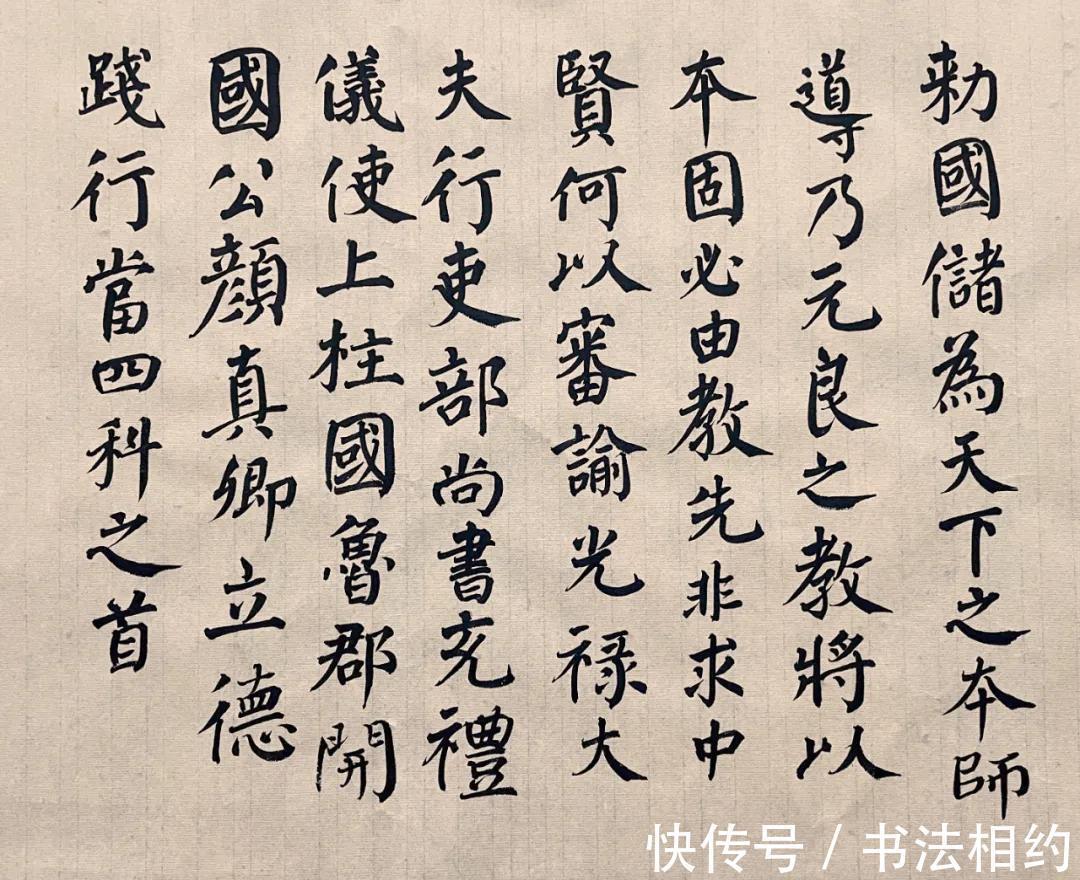 勑國儲為天下之本師
導乃元良之教將以
本固必由教先非求中
賢何以審諭光禄大
夫行吏部尚書充禮
儀使上柱國魯郡開
國公顔真卿立德
踐行當四科之首
快传号 / 书法相约